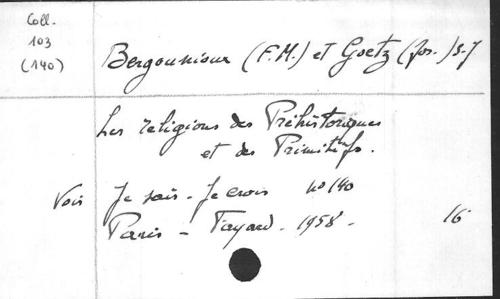 Coll.
103
(140)
Bergounioux (F.M.) et Goetz (Jos.) s.J
Les religions des Préhistoriques
et des Primitifs.
Vois Je sais - Je crois no 140
Paris - Fayard - 1958 - 16